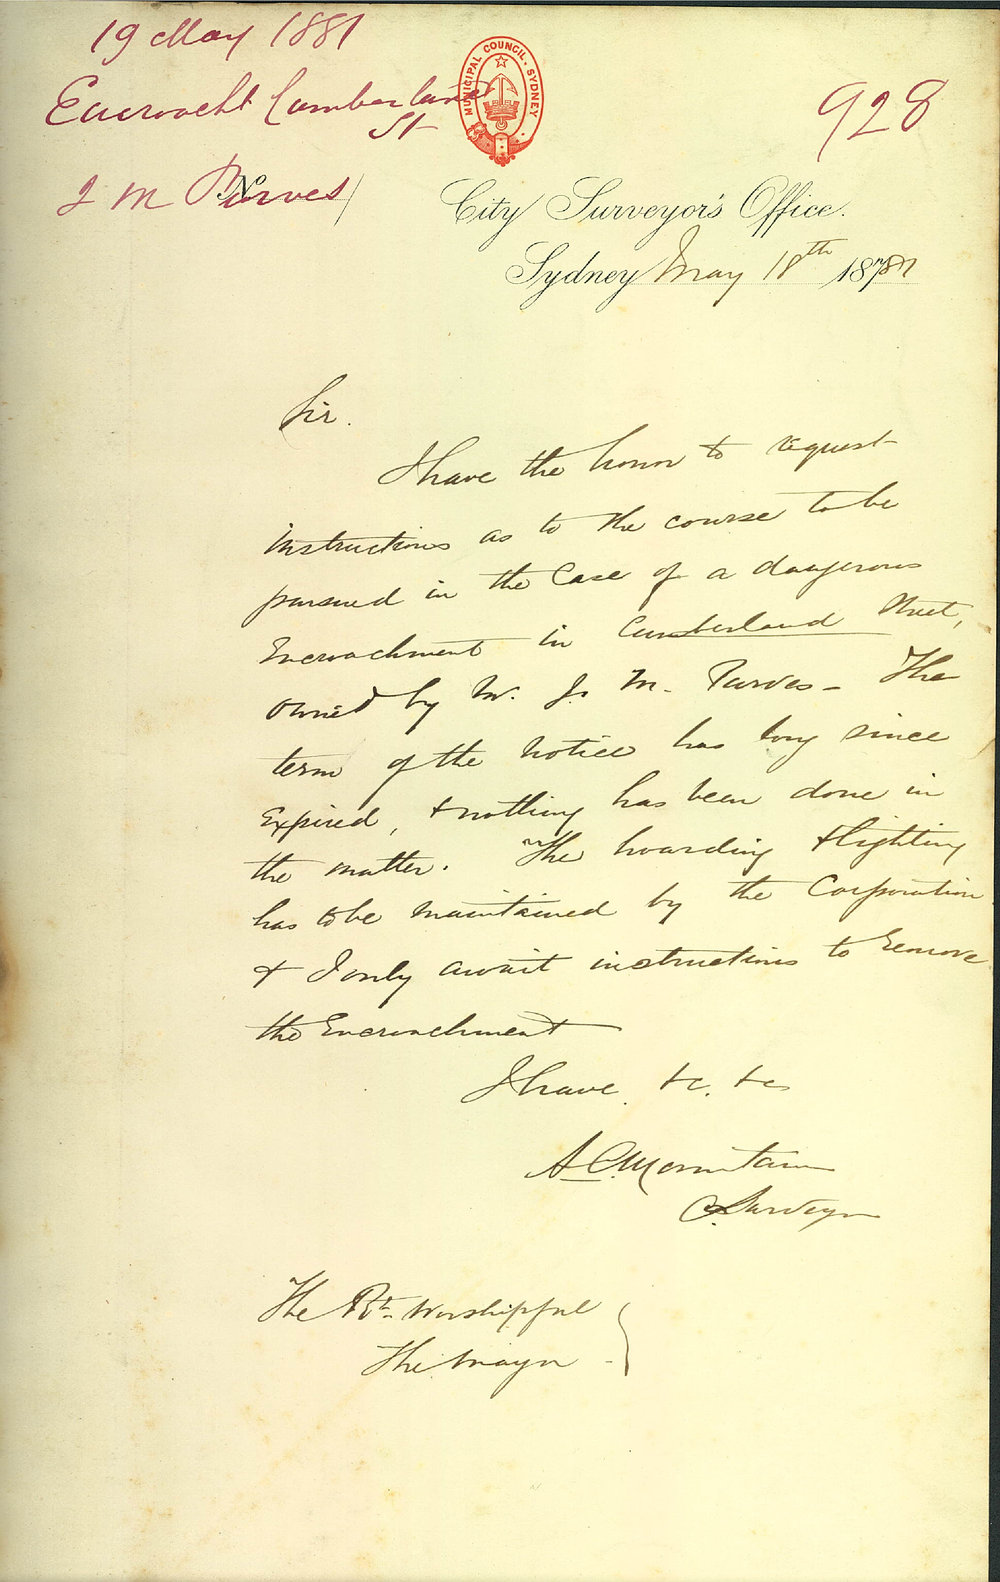 19 May 1881
Encroacht Cumberland
St
J M Purves
No
928
MUNICIPAL COUNCIL. SYDNEY
City Surveyor's Office.
Sydney May 18th 1881
Sir.
I have the honor to request
instructions as to the course to be
pursued in the Case of a dangerous
Encroachment in Cumberland Street,
owned by Mr. J. M. Purves - The
term of the Notice has long since
Expired, & nothing has been done in
the matter. The hoarding & lighting
has to be maintained by the Corporation
& I only await instructions to remove
the Encroachment
I have &c. &c
A C Mountain
C. Surveyor
The Rt. Worshipful
The Mayor